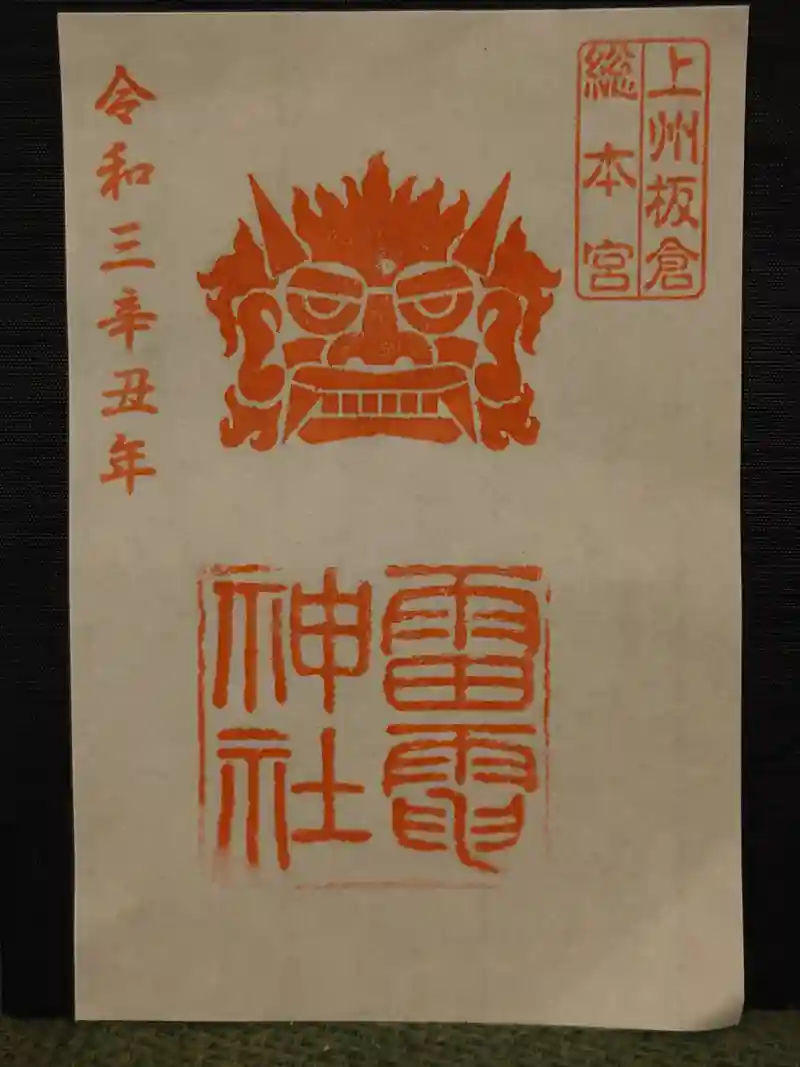 上州板倉
総本宮
雷電
神社
令和三辛丑年